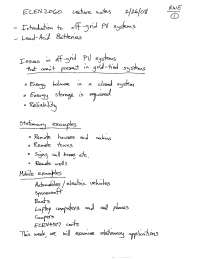 ELEN 20GO Lecture notes 2/26/08 RWE
①
- Introduction to off-grid PV systems
- Lead-Acid Batteries
Issues in off-grid PV systems
that aren't present in grid-tied systems
• Energy balance in a closed system
• Energy storage is required
• Reliability
Stationary examples
• Remote houses and cabins
• Remote towns
• Signs, call boxes, etc.
• Remote wells
Mobile examples
Automobiles / electric vehicles
Spacecraft
Boats
Laptop computers and cell phones
Campers
carts
This week, we will examine stationary applications